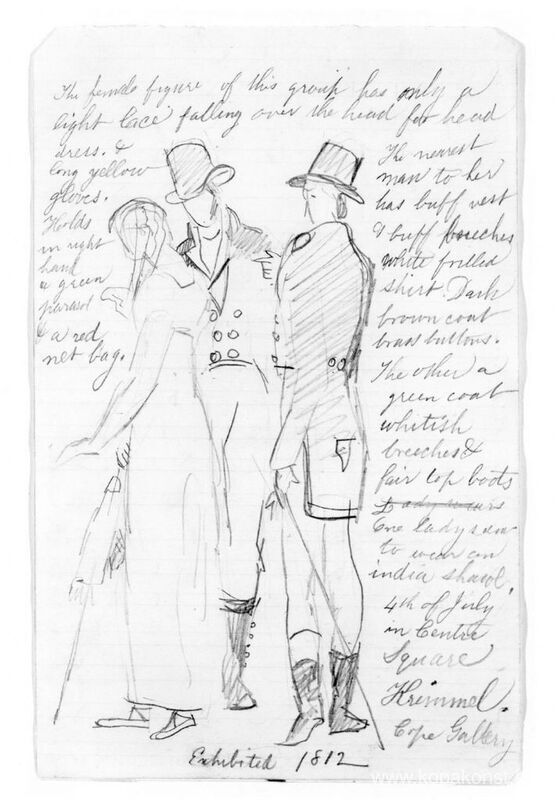 The female figure of this group has only a
light lace falling over the head for head
dress. &
long yellow
gloves.
Holds
in right
hand
a green
parasol
& a red
net bag.
The nearest
man to her
has buff vest
& buff breeches
white frilled
shirt. Dark
brown coat
brass buttons.
The other a
green coat
whitish
breeches &
fair top boots
Lady wears
One lady seen
to wear an
india shawl
4th of July
in Centre
Square
Krimmel.
Cope Gallery
Exhibited 1812